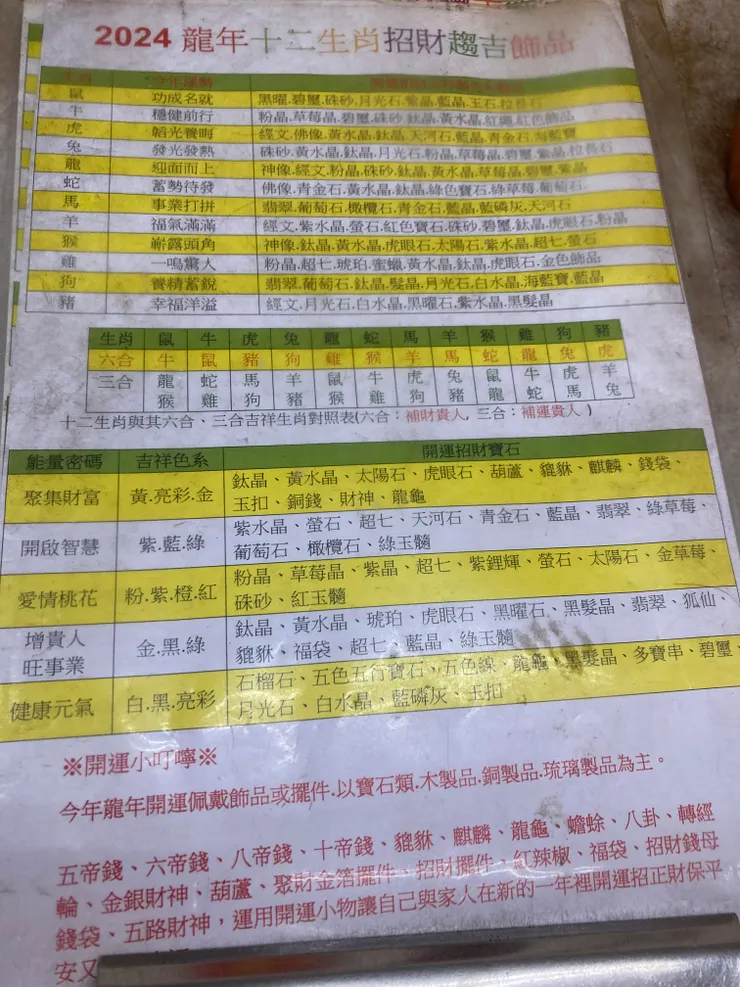 2024 龍年十二生肖招財趨吉飾品
今年運勢
鼠 功成名就 黑曜.碧璽.硃砂.月光石.紫晶.藍晶.玉石.拉長石
牛 穩健前行 粉晶.草莓晶.碧璽.硃砂.鈦晶.黃水晶.紅繩.紅色飾品
虎 韜光養晦 經文.佛像.黃水晶.鈦晶.天河石.藍晶.青金石.海藍寶
兔 發光發熱 硃砂.黃水晶.鈦晶.月光石.粉晶.草莓晶.碧璽.紫晶.拉長石
龍 迎面而上 神像.經文.粉晶.硃砂.鈦晶.黃水晶.草莓晶.碧璽.紫晶
蛇 蓄勢待發 佛像.青金石.黃水晶.鈦晶.綠色寶石.綠草莓.葡萄石
馬 事業打拼 翡翠.葡萄石.橄欖石.青金石.藍晶.藍磷灰.天河石
羊 福氣滿滿 經文.紫水晶.螢石.紅色寶石.硃砂.碧璽.鈦晶.虎眼石.粉晶
猴 嶄露頭角 神像.鈦晶.黃水晶.虎眼石.太陽石.紫水晶.超七.螢石
雞 一鳴驚人 粉晶.超七.琥珀.蜜蠟.黃水晶.鈦晶.虎眼石.金色飾品
狗 養精蓄銳 翡翠.葡萄石.鈦晶.髮晶.月光石.白水晶.海藍寶.藍晶
豬 幸福洋溢 經文.月光石.白水晶.黑曜石.紫水晶.黑髮晶
生肖 鼠 牛 虎 兔 龍 蛇 馬 羊 猴 雞 狗 豬
六合 牛 鼠 豬 狗 雞 猴 羊 馬 蛇 龍 兔 虎
三合 龍 蛇 馬 羊 鼠 牛 虎 兔 鼠 牛 虎 羊
猴 雞 狗 豬 猴 雞 狗 豬 龍 蛇 馬 兔
十二生肖與其六合、三合吉祥生肖對照表(六合：補財貴人, 三合：補運貴人)
能量密碼 吉祥色系 開運招財寶石
聚集財富 黃.亮彩.金 鈦晶、黃水晶、太陽石、虎眼石、葫蘆、貔貅、麒麟、錢袋、
玉扣、銅錢、財神、龍龜
開啟智慧 紫.藍.綠 紫水晶、螢石、超七、天河石、青金石、藍晶、翡翠、綠草莓、
葡萄石、橄欖石、綠玉髓
愛情桃花 粉.紫.橙.紅 粉晶、草莓晶、紫晶、超七、紫鋰輝、螢石、太陽石、金草莓、
硃砂、紅玉髓
增貴人
旺事業 金.黑.綠 鈦晶、黃水晶、琥珀、虎眼石、黑曜石、黑髮晶、翡翠、狐仙、
貔貅、福袋、超七、藍晶、綠玉髓
健康元氣 白.黑.亮彩 石榴石、五色五行寶石、五色線、龍龜、黑髮晶、多寶串、碧璽、
月光石、白水晶、藍磷灰、玉扣
※開運小叮嚀※
今年龍年開運佩戴飾品或擺件.以寶石類.木製品.銅製品.琉璃製品為主。
五帝錢、六帝錢、八帝錢、十帝錢、貔貅、麒麟、龍龜、蟾蜍、八卦、轉經
輪、金銀財神、葫蘆、聚財金箔擺件、招財擺件、紅辣椒、福袋、招財錢母
錢袋、五路財神，運用開運小物讓自己與家人在新的一年裡開運招正財保平
安又